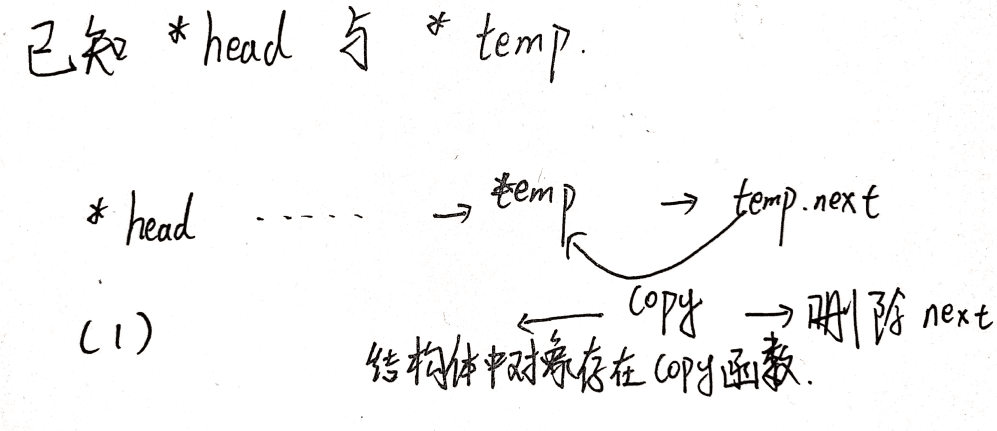 已知 *head 与 *temp.
*head ...... → *temp → temp.next
copy → 删除 next
(1) ←
结构体中对象存在copy函数.